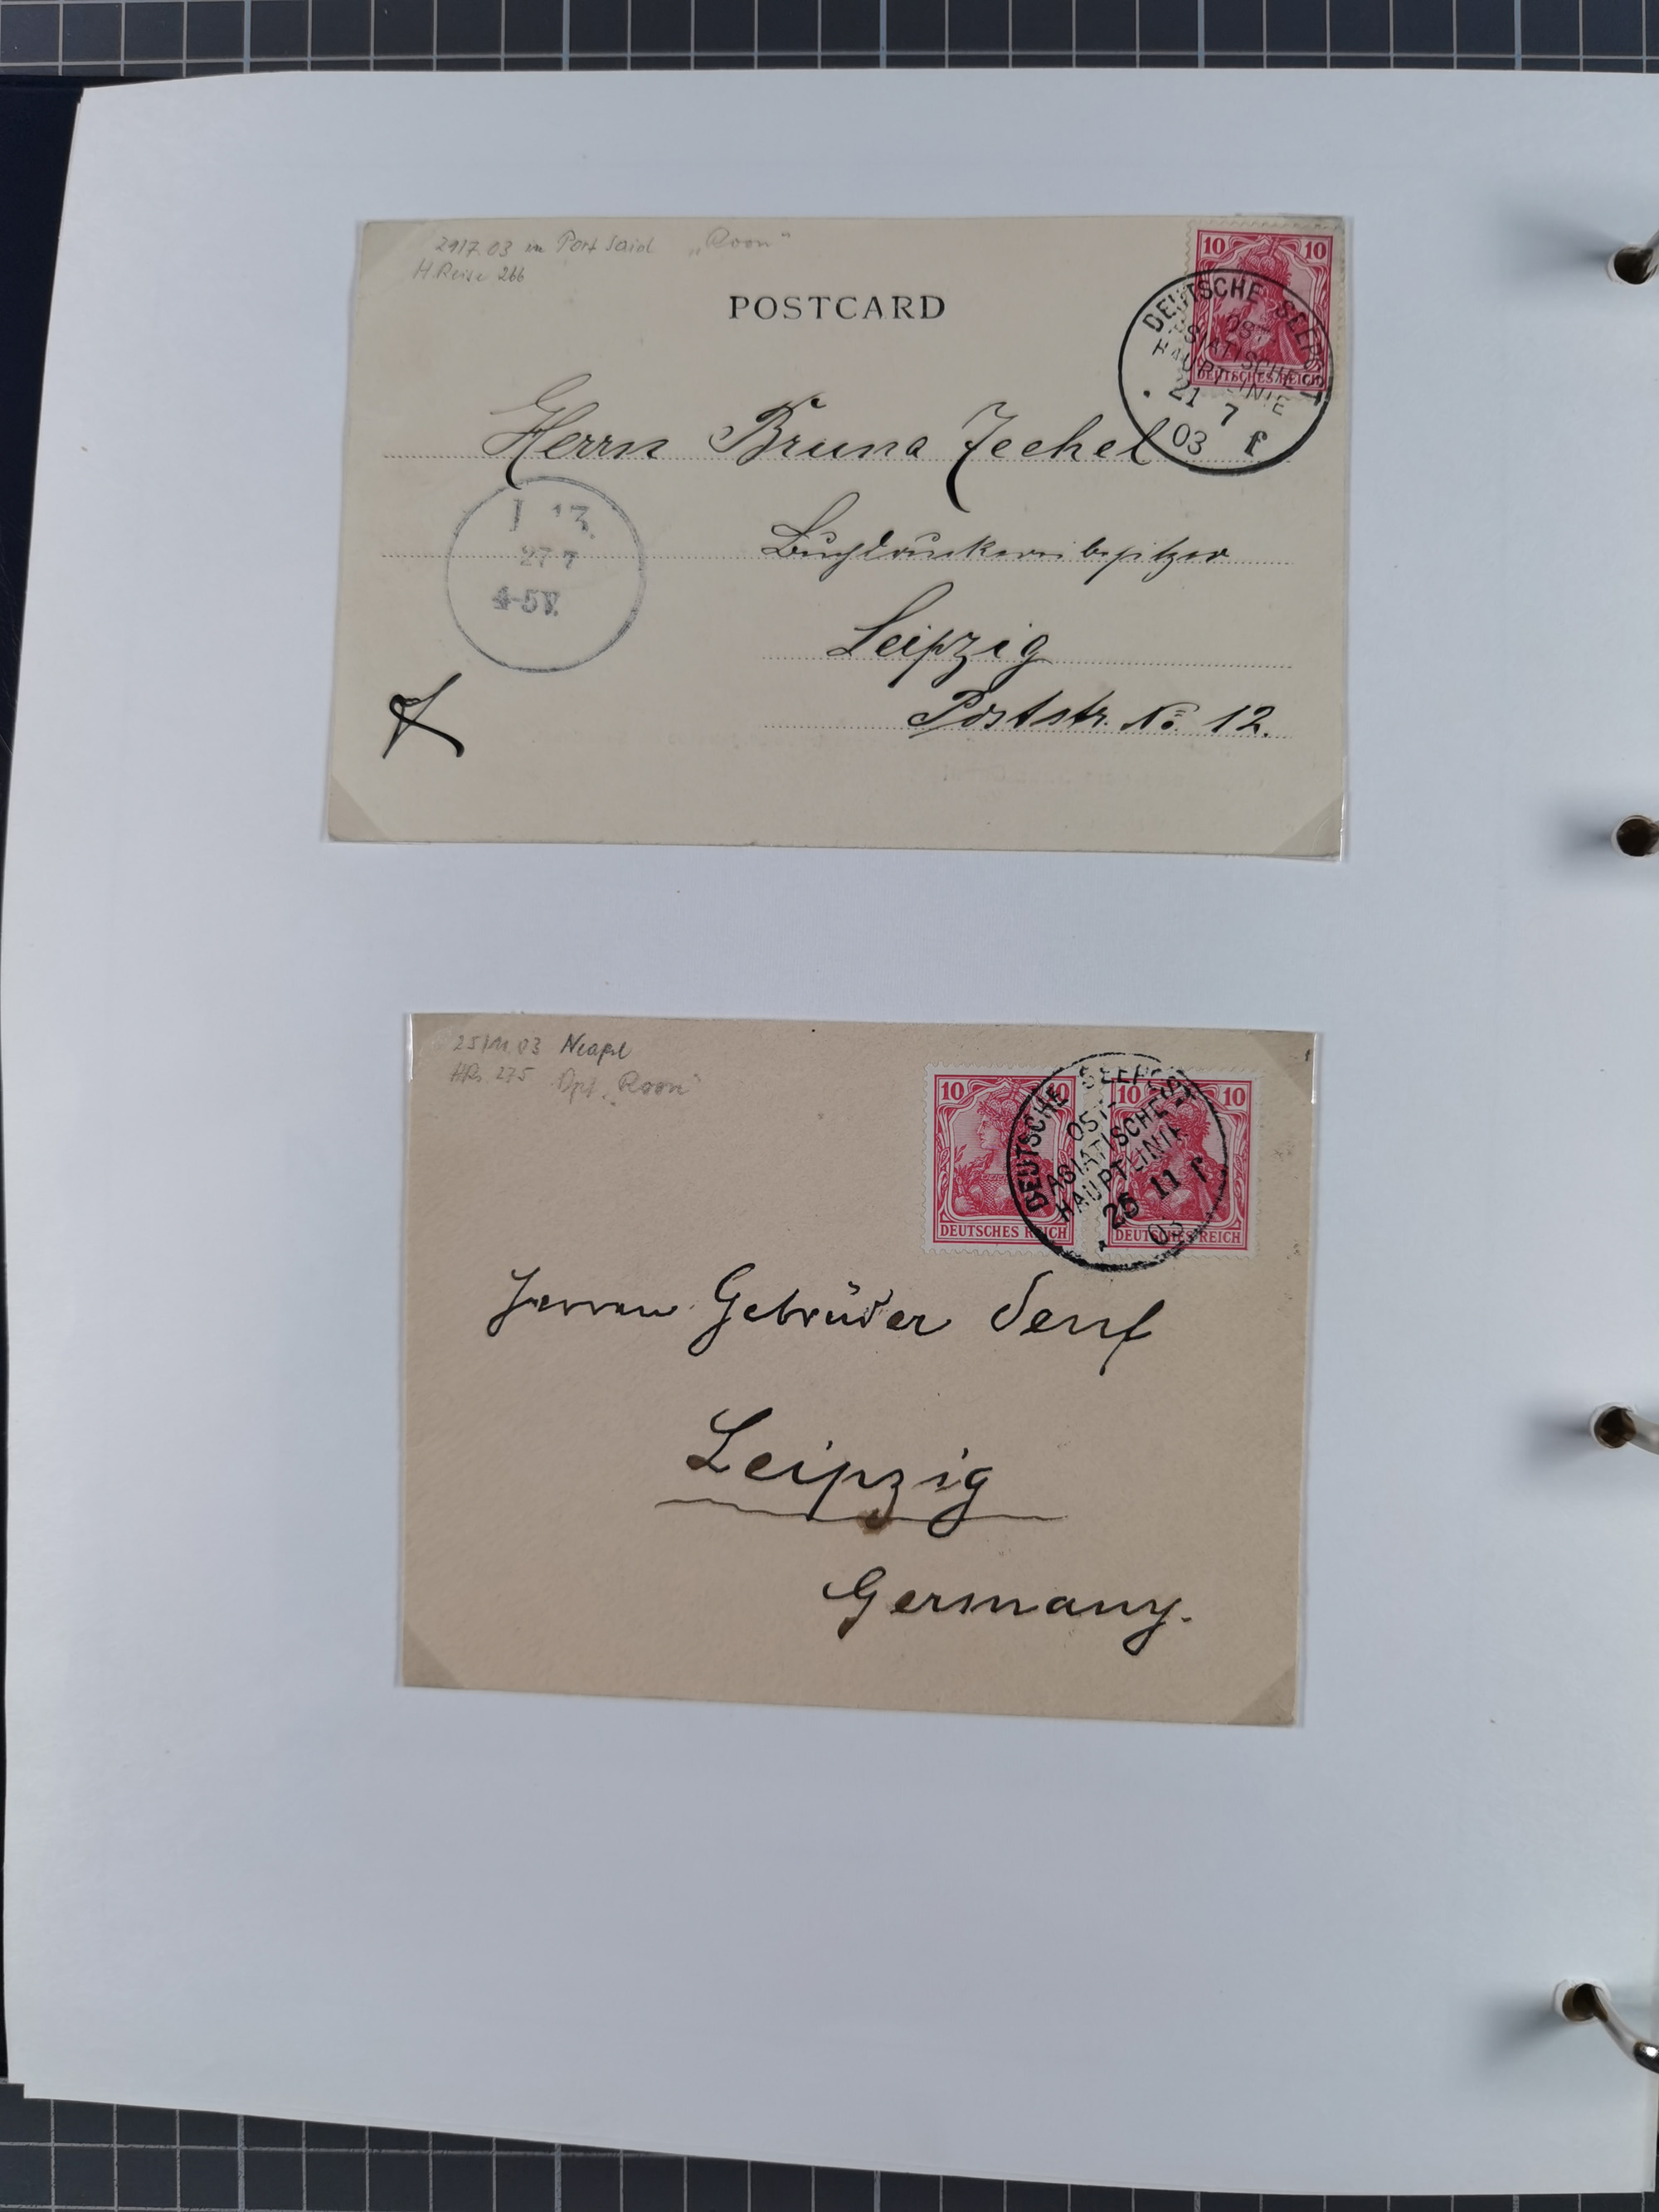 29/7.03 in Port Said „Roon“
H. Reise 266
POSTCARD
10 10
DEUTSCHES REICH
DEUTSCHE SEEPOST
OST-
ASIATISCHE
HAUPTLINIE
21 7
03 f
Herrn Bruno Zechel
Buchdruckereibesitzer
Leipzig
Poststr. No. 12.
27 7
4-5V.
25/11.03 Neapel
HRs. 275 Dpf. „Roon“
10 10
DEUTSCHES REICH
10 10
DEUTSCHES REICH
DEUTSCHE SEEPOST
OST-
ASIATISCHE
HAUPTLINIE
25 11 f
03
Herren Gebrüder Senf
Leipzig
Germany.